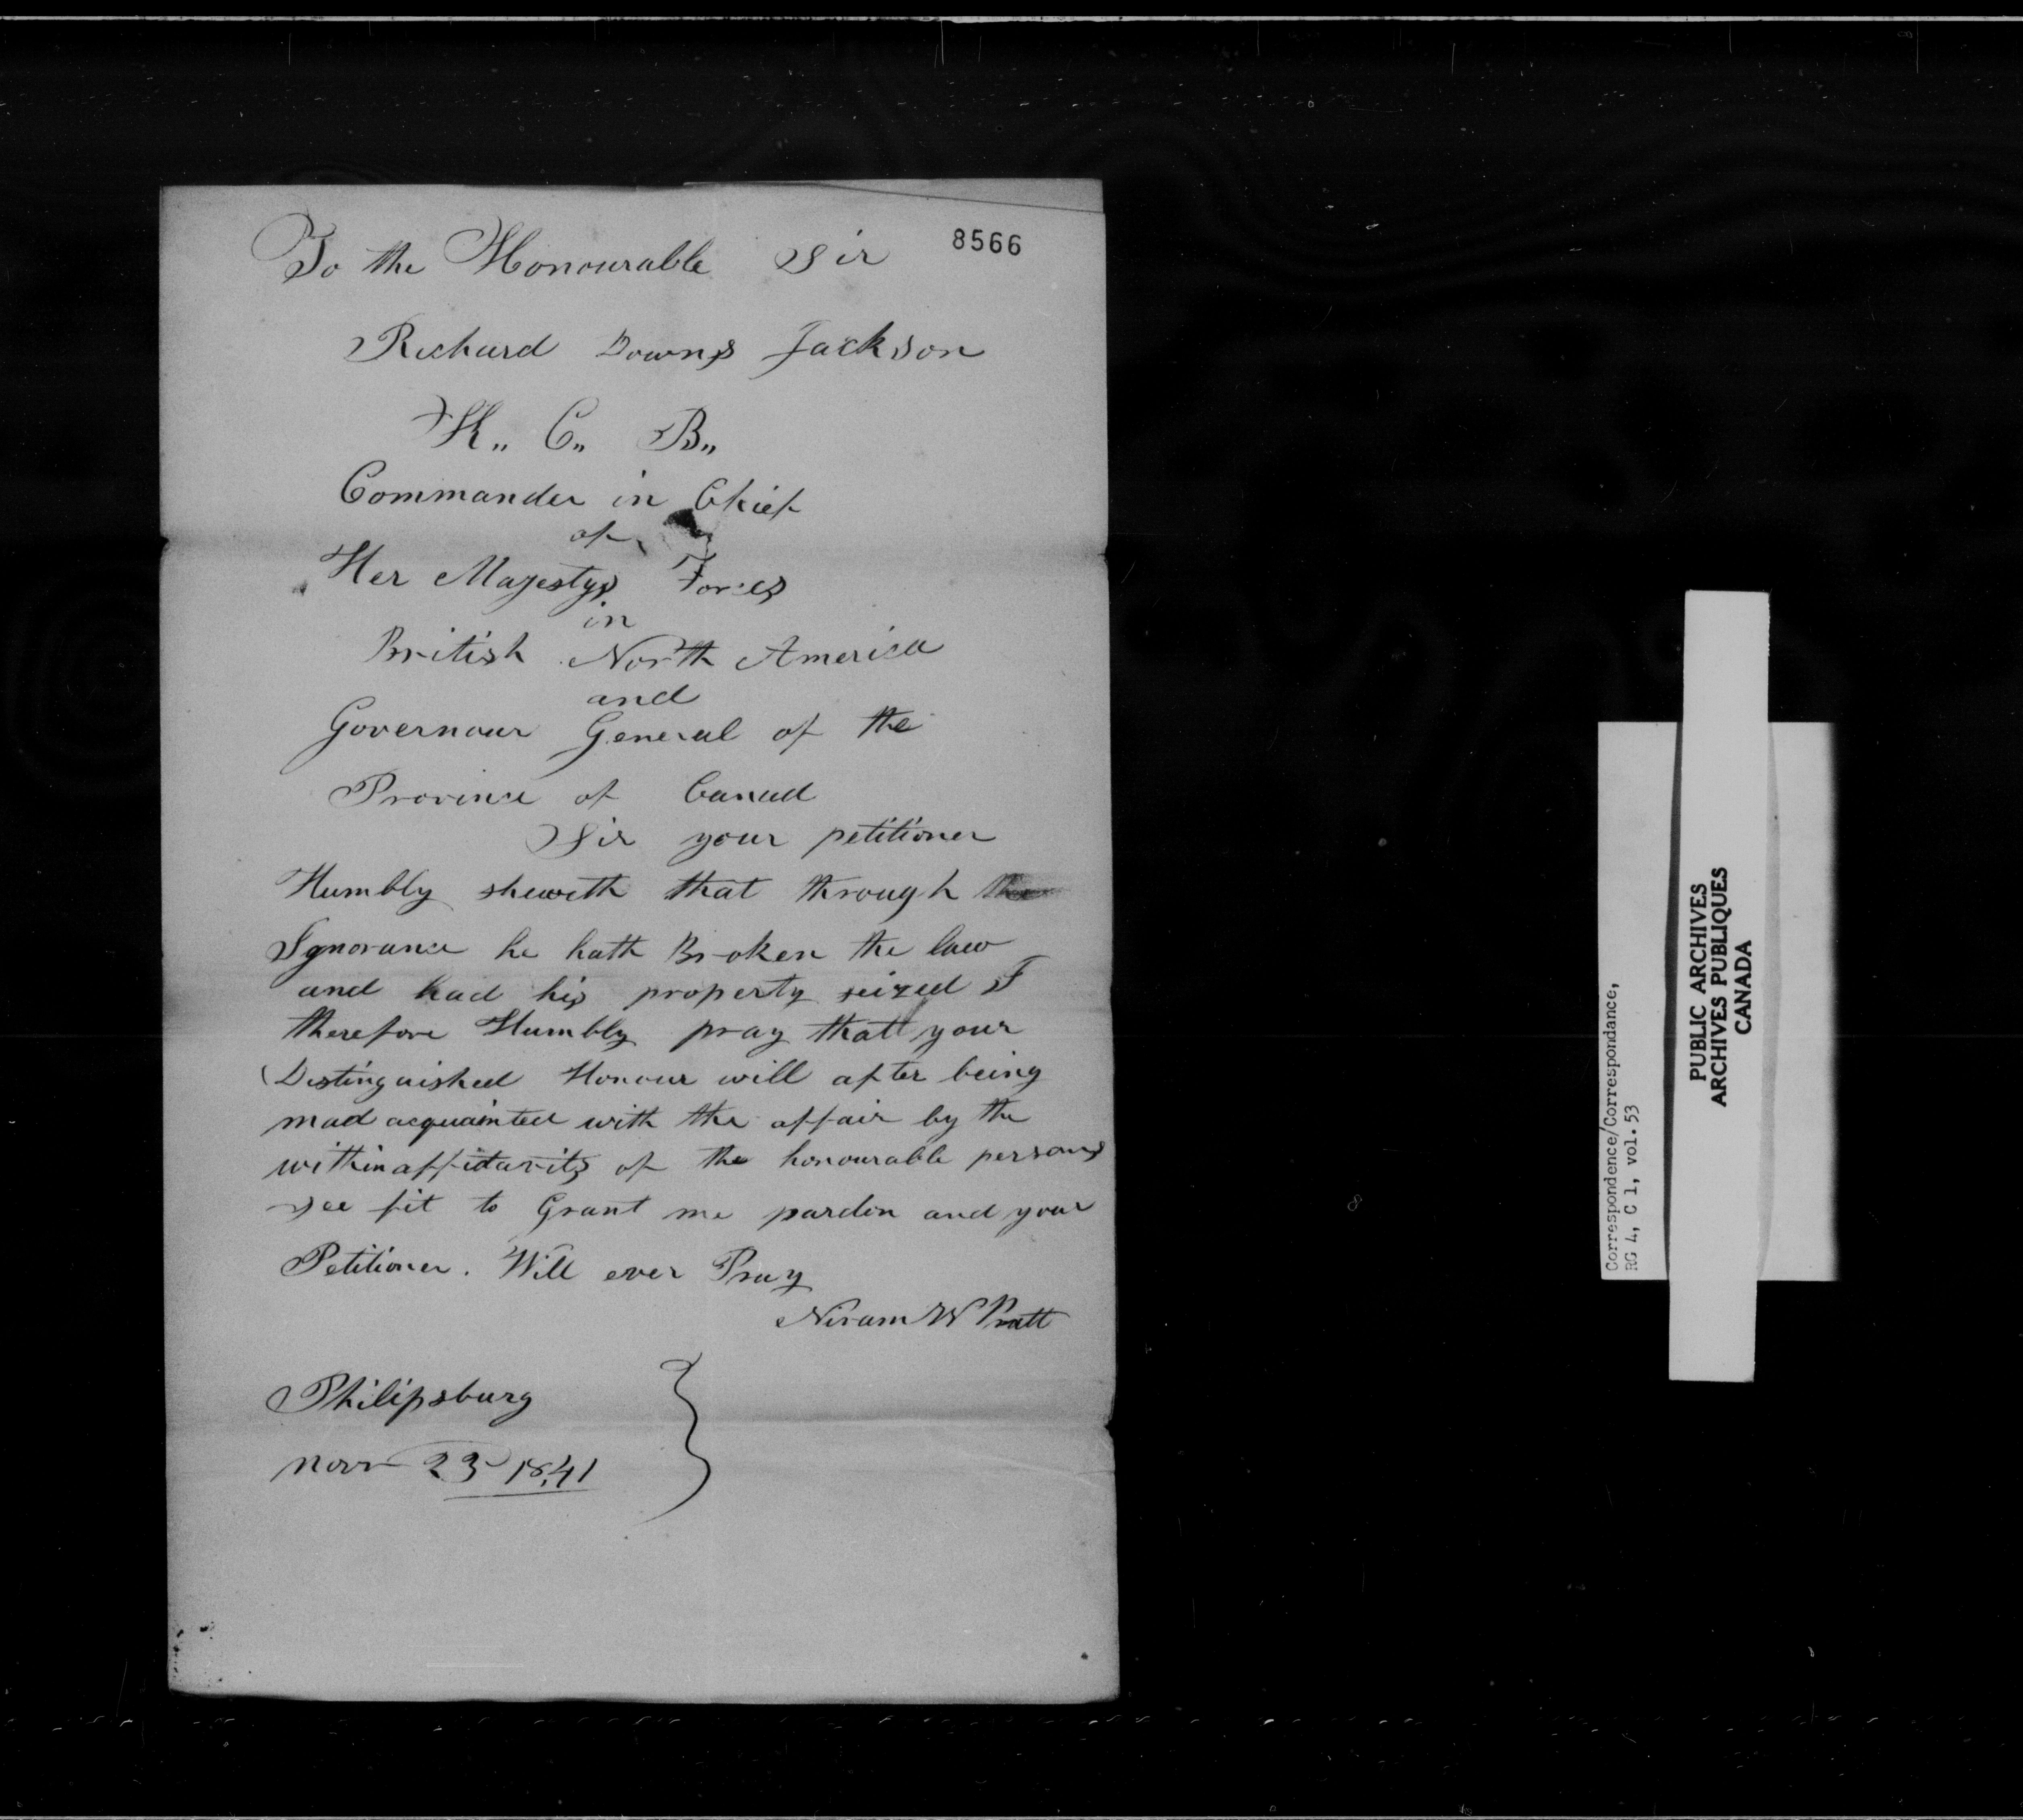 8566
To the Honourable Sir
Richard Downs Jackson
K,, C,, B,,
Commander in Chief
of
Her Majestys Forces
in
British North America
and
Governour General of the
Province of Canad
Sir your petitioner
Humbly sheweth that through
Ignorance he hath Broken the law
and had his property seized I
therefore Humbly pray that your
Distinguished Honour will after being
mad acquainted with the affair by the
within affidavits of the honourable persons
see fit to Grant me pardon and your
Petitioner. Will ever Pray
Niram W Pratt
Philipsburg
Novr 23 1841
Correspondence/Correspondance,
RG 4, C 1, vol. 53
PUBLIC ARCHIVES
ARCHIVES PUBLIQUES
CANADA